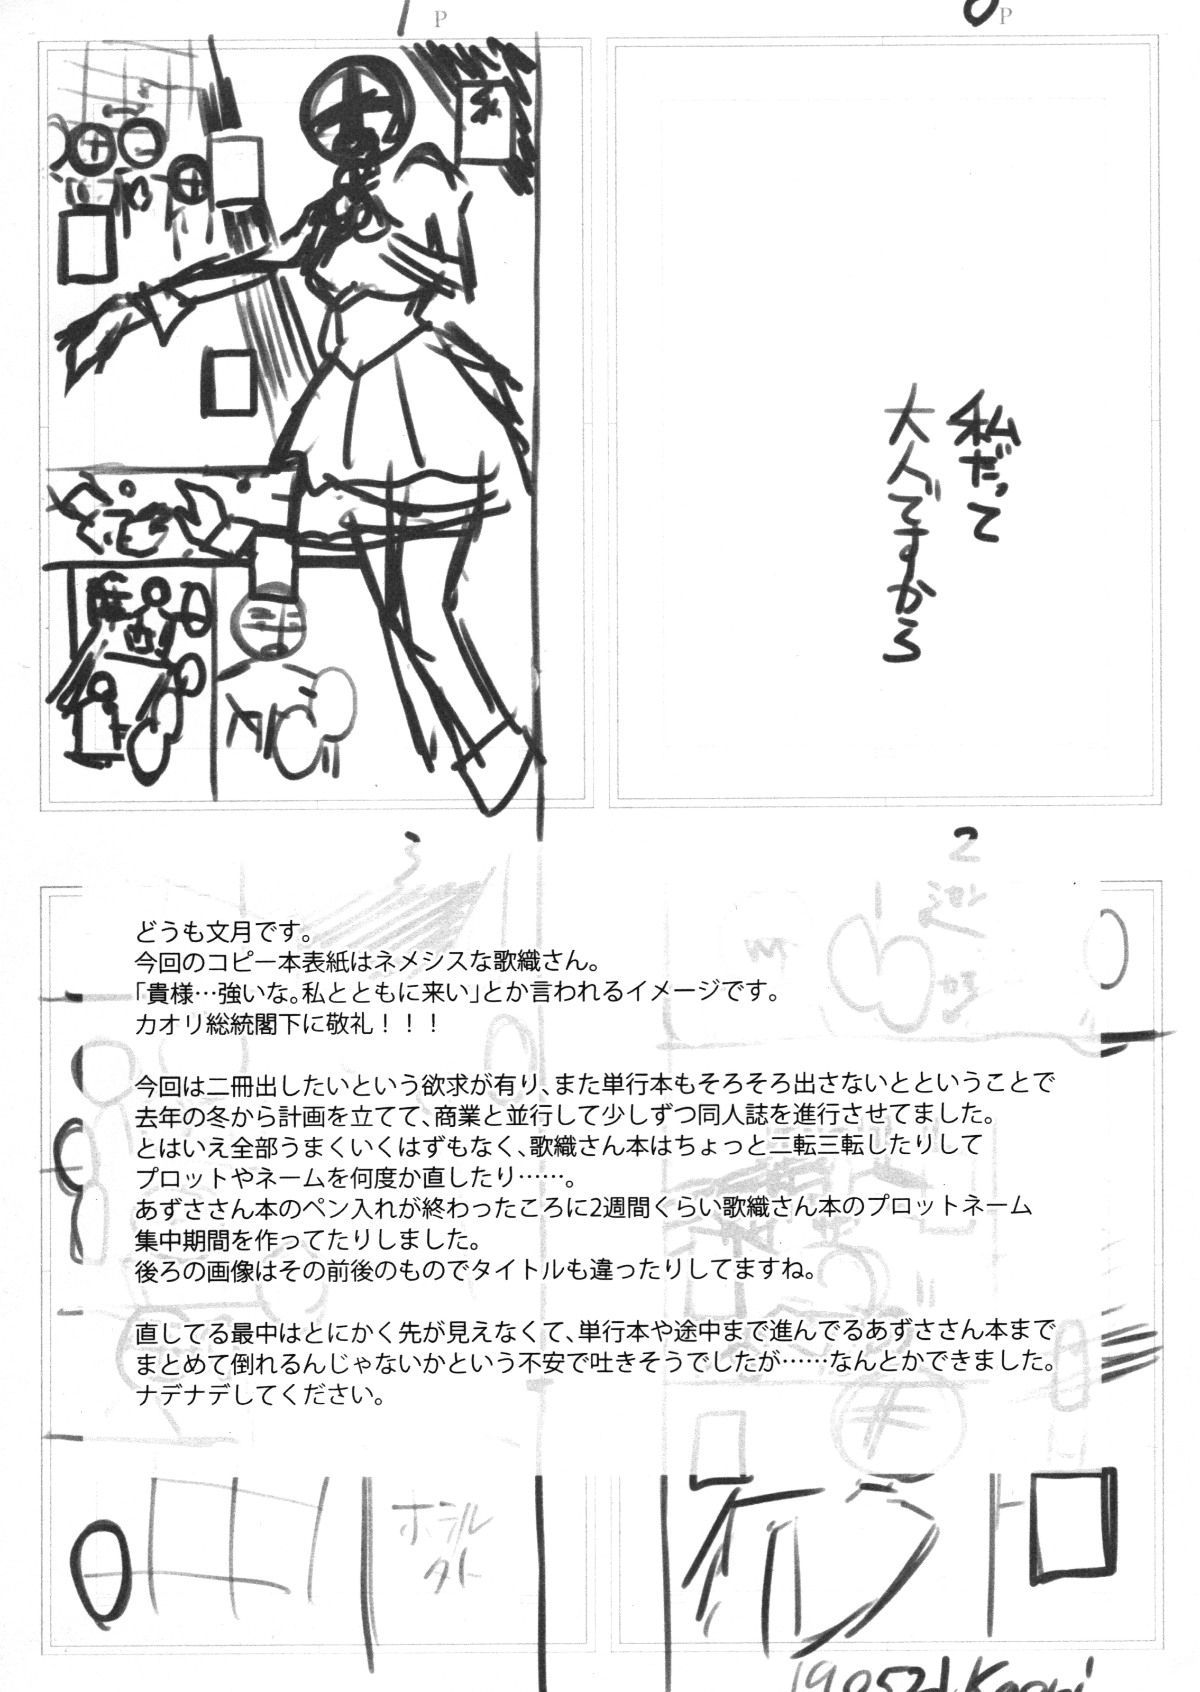 1
P
P
私だって
大人ですから
3
2
どうも文月です。
今回のコピー本表紙はネメシスな歌織さん。
「貴様…強いな。私とともに来い」とか言われるイメージです。
カオリ総統閣下に敬礼！！！
今回は二冊出したいという欲求が有り、また単行本もそろそろ出さないとということで
去年の冬から計画を立てて、商業と並行して少しずつ同人誌を進行させてました。
とはいえ全部うまくいくはずもなく、歌織さん本はちょっと二転三転したりして
プロットやネームを何度か直したり……。
あずささん本のペン入れが終わったころに2週間くらい歌織さん本のプロットネーム
集中期間を作ってたりしました。
後ろの画像はその前後のものでタイトルも違ったりしてますね。
直してる最中はとにかく先が見えなくて、単行本や途中まで進んでるあずささん本まで
まとめて倒れるんじゃないかという不安で吐きそうでしたが……なんとかできました。
ナデナデしてください。